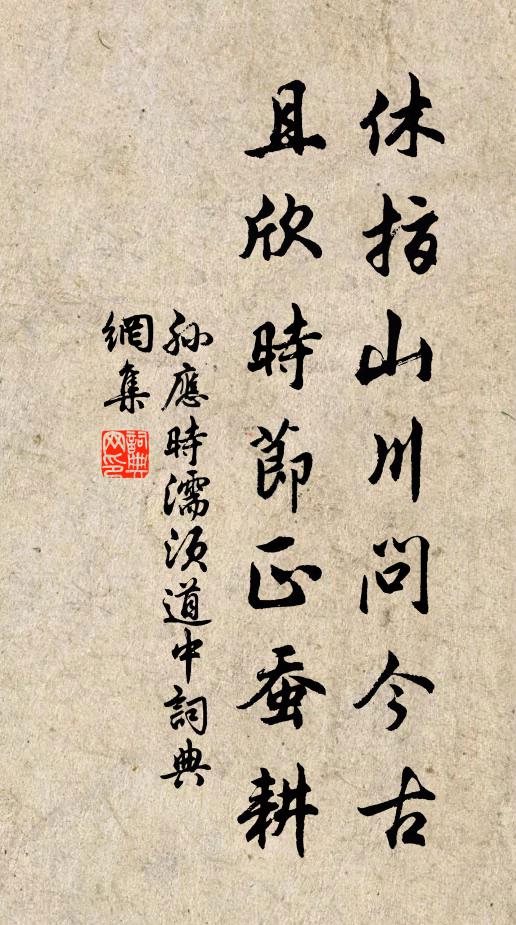 休指山川問今古
且欣時節正蚕耕
孫應時濡須道中詞典
網集
詞典網印